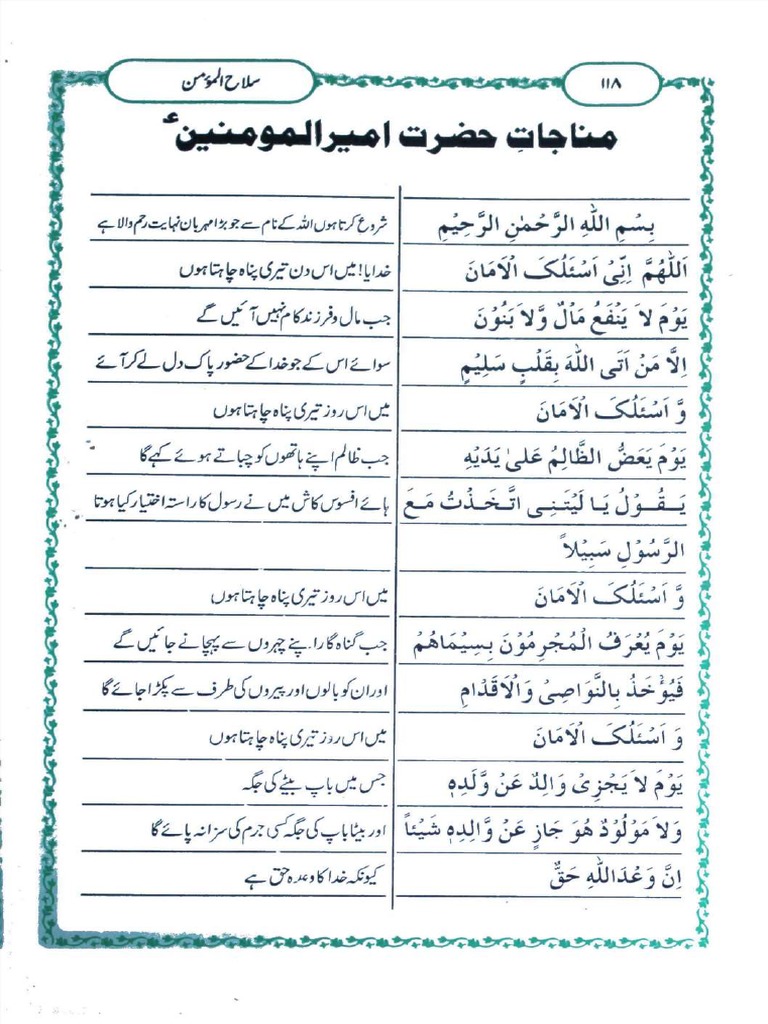 ۱۱۸
سلاح المؤمن
مناجاتِ حضرت امیرالمومنینؑ
بِسْمِ اللّٰہِ الرَّحْمٰنِ الرَّحِیْمِ
شروع کرتا ہوں اللہ کے نام سے جو بڑا مہربان نہایت رحم والا ہے
اَللّٰہُمَّ اِنِّیْ اَسْئَلُکَ الْاَمَانَ
خدایا! میں اس دن تیری پناہ چاہتا ہوں
یَوْمَ لاَ یَنْفَعُ مَالٌ وَّلاَ بَنُوْنَ
جب مال و فرزند کام نہیں آئیں گے
اِلَّا مَنْ اَتَی اللّٰہَ بِقَلْبٍ سَلِیْمٍ
سوائے اس کے جو خدا کے حضور پاک دل لے کر آئے
وَّ اَسْئَلُکَ الْاَمَانَ
میں اس روز تیری پناہ چاہتا ہوں
یَوْمَ یَعَضُّ الظَّالِمُ عَلیٰ یَدَیْہِ
جب ظالم اپنے ہاتھوں کو چباتے ہوئے کہے گا
یَقُوْلُ یَا لَیْتَنِی اتَّخَذْتُ مَعَ
ہائے افسوس کاش میں نے رسول کا راستہ اختیار کیا ہوتا
الرَّسُوْلِ سَبِیْلاً
وَّ اَسْئَلُکَ الْاَمَانَ
میں اس روز تیری پناہ چاہتا ہوں
یَوْمَ یُعْرَفُ الْمُجْرِمُوْنَ بِسِیْمَاہُمْ
جب گناہ گار اپنے چہروں سے پہچانے جائیں گے
فَیُؤْخَذُ بِالنَّوَاصِیْ وَالْاَقْدَامِ
اور ان کو بالوں اور پیروں کی طرف سے پکڑا جائے گا
وَ اَسْئَلُکَ الْاَمَانَ
میں اس روز تیری پناہ چاہتا ہوں
یَوْمَ لاَ یَجْزِیْ وَالِدٌ عَنْ وَّلَدِہٖ
جس میں باپ بیٹے کی جگہ
وَلاَ مَوْلُوْدٌ ہُوَ جَازٍ عَنْ وَّالِدِہٖ شَیْئاً
اور بیٹا باپ کی جگہ کسی جرم کی سزا نہ پائے گا
اِنَّ وَعْدَاللّٰہِ حَقٌّ
کیونکہ خدا کا وعدہ حق ہے